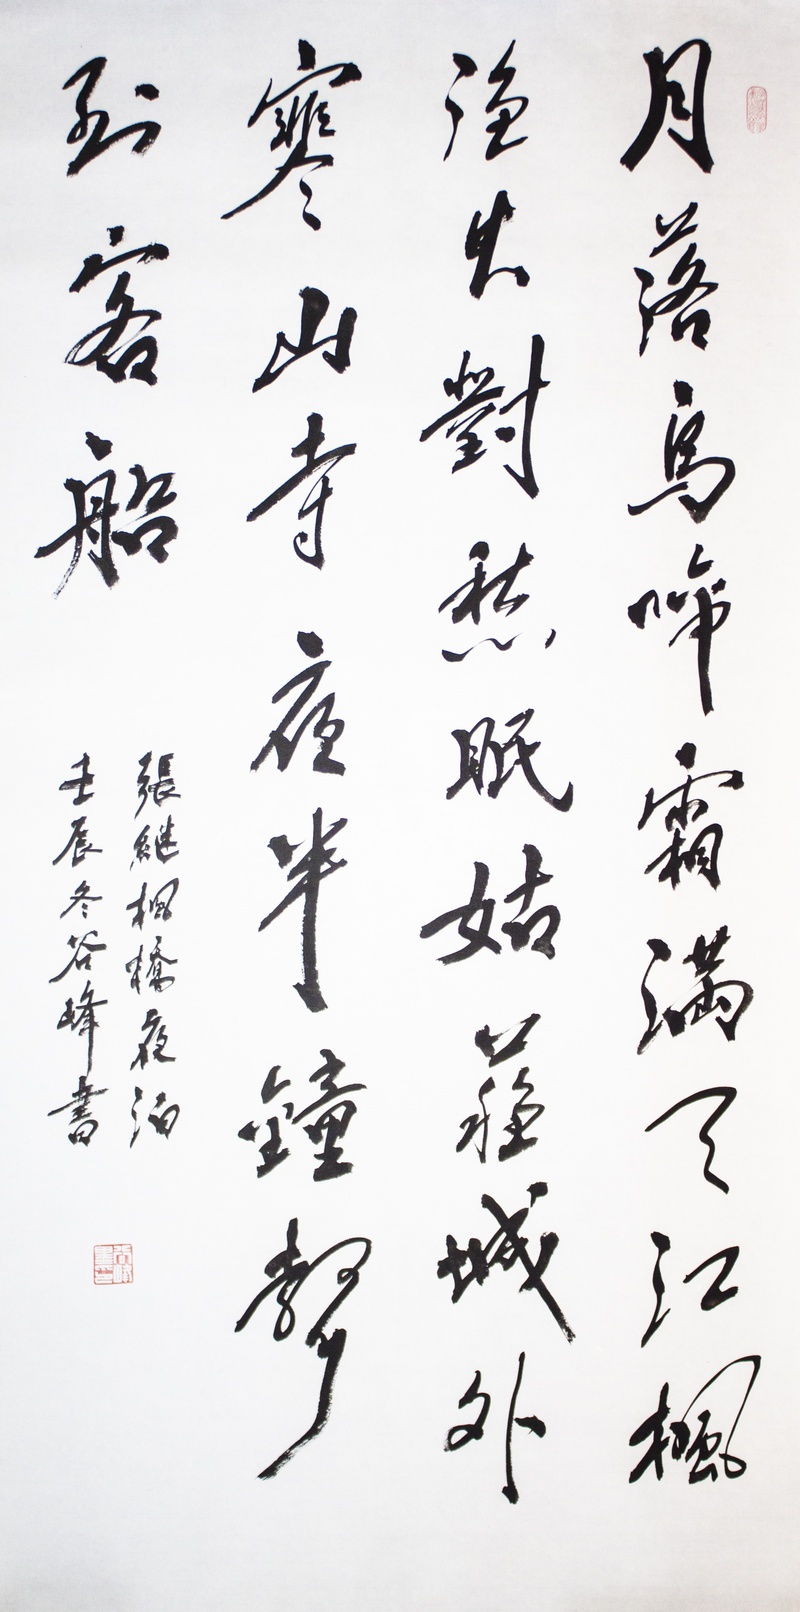 月落烏啼霜滿天江楓
漁火對愁眠姑蘇城外
寒山寺夜半鐘聲
到客船
張継楓橋夜泊
壬辰冬谷峰書